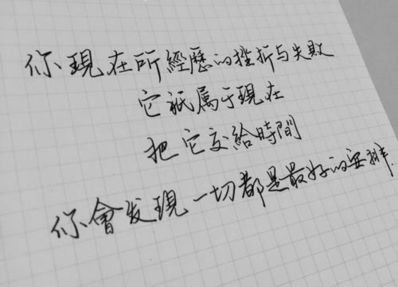 你現在所經歷的挫折与失敗
它祇属于現在
把它交給時間
你會发現一切都是最好的安排.